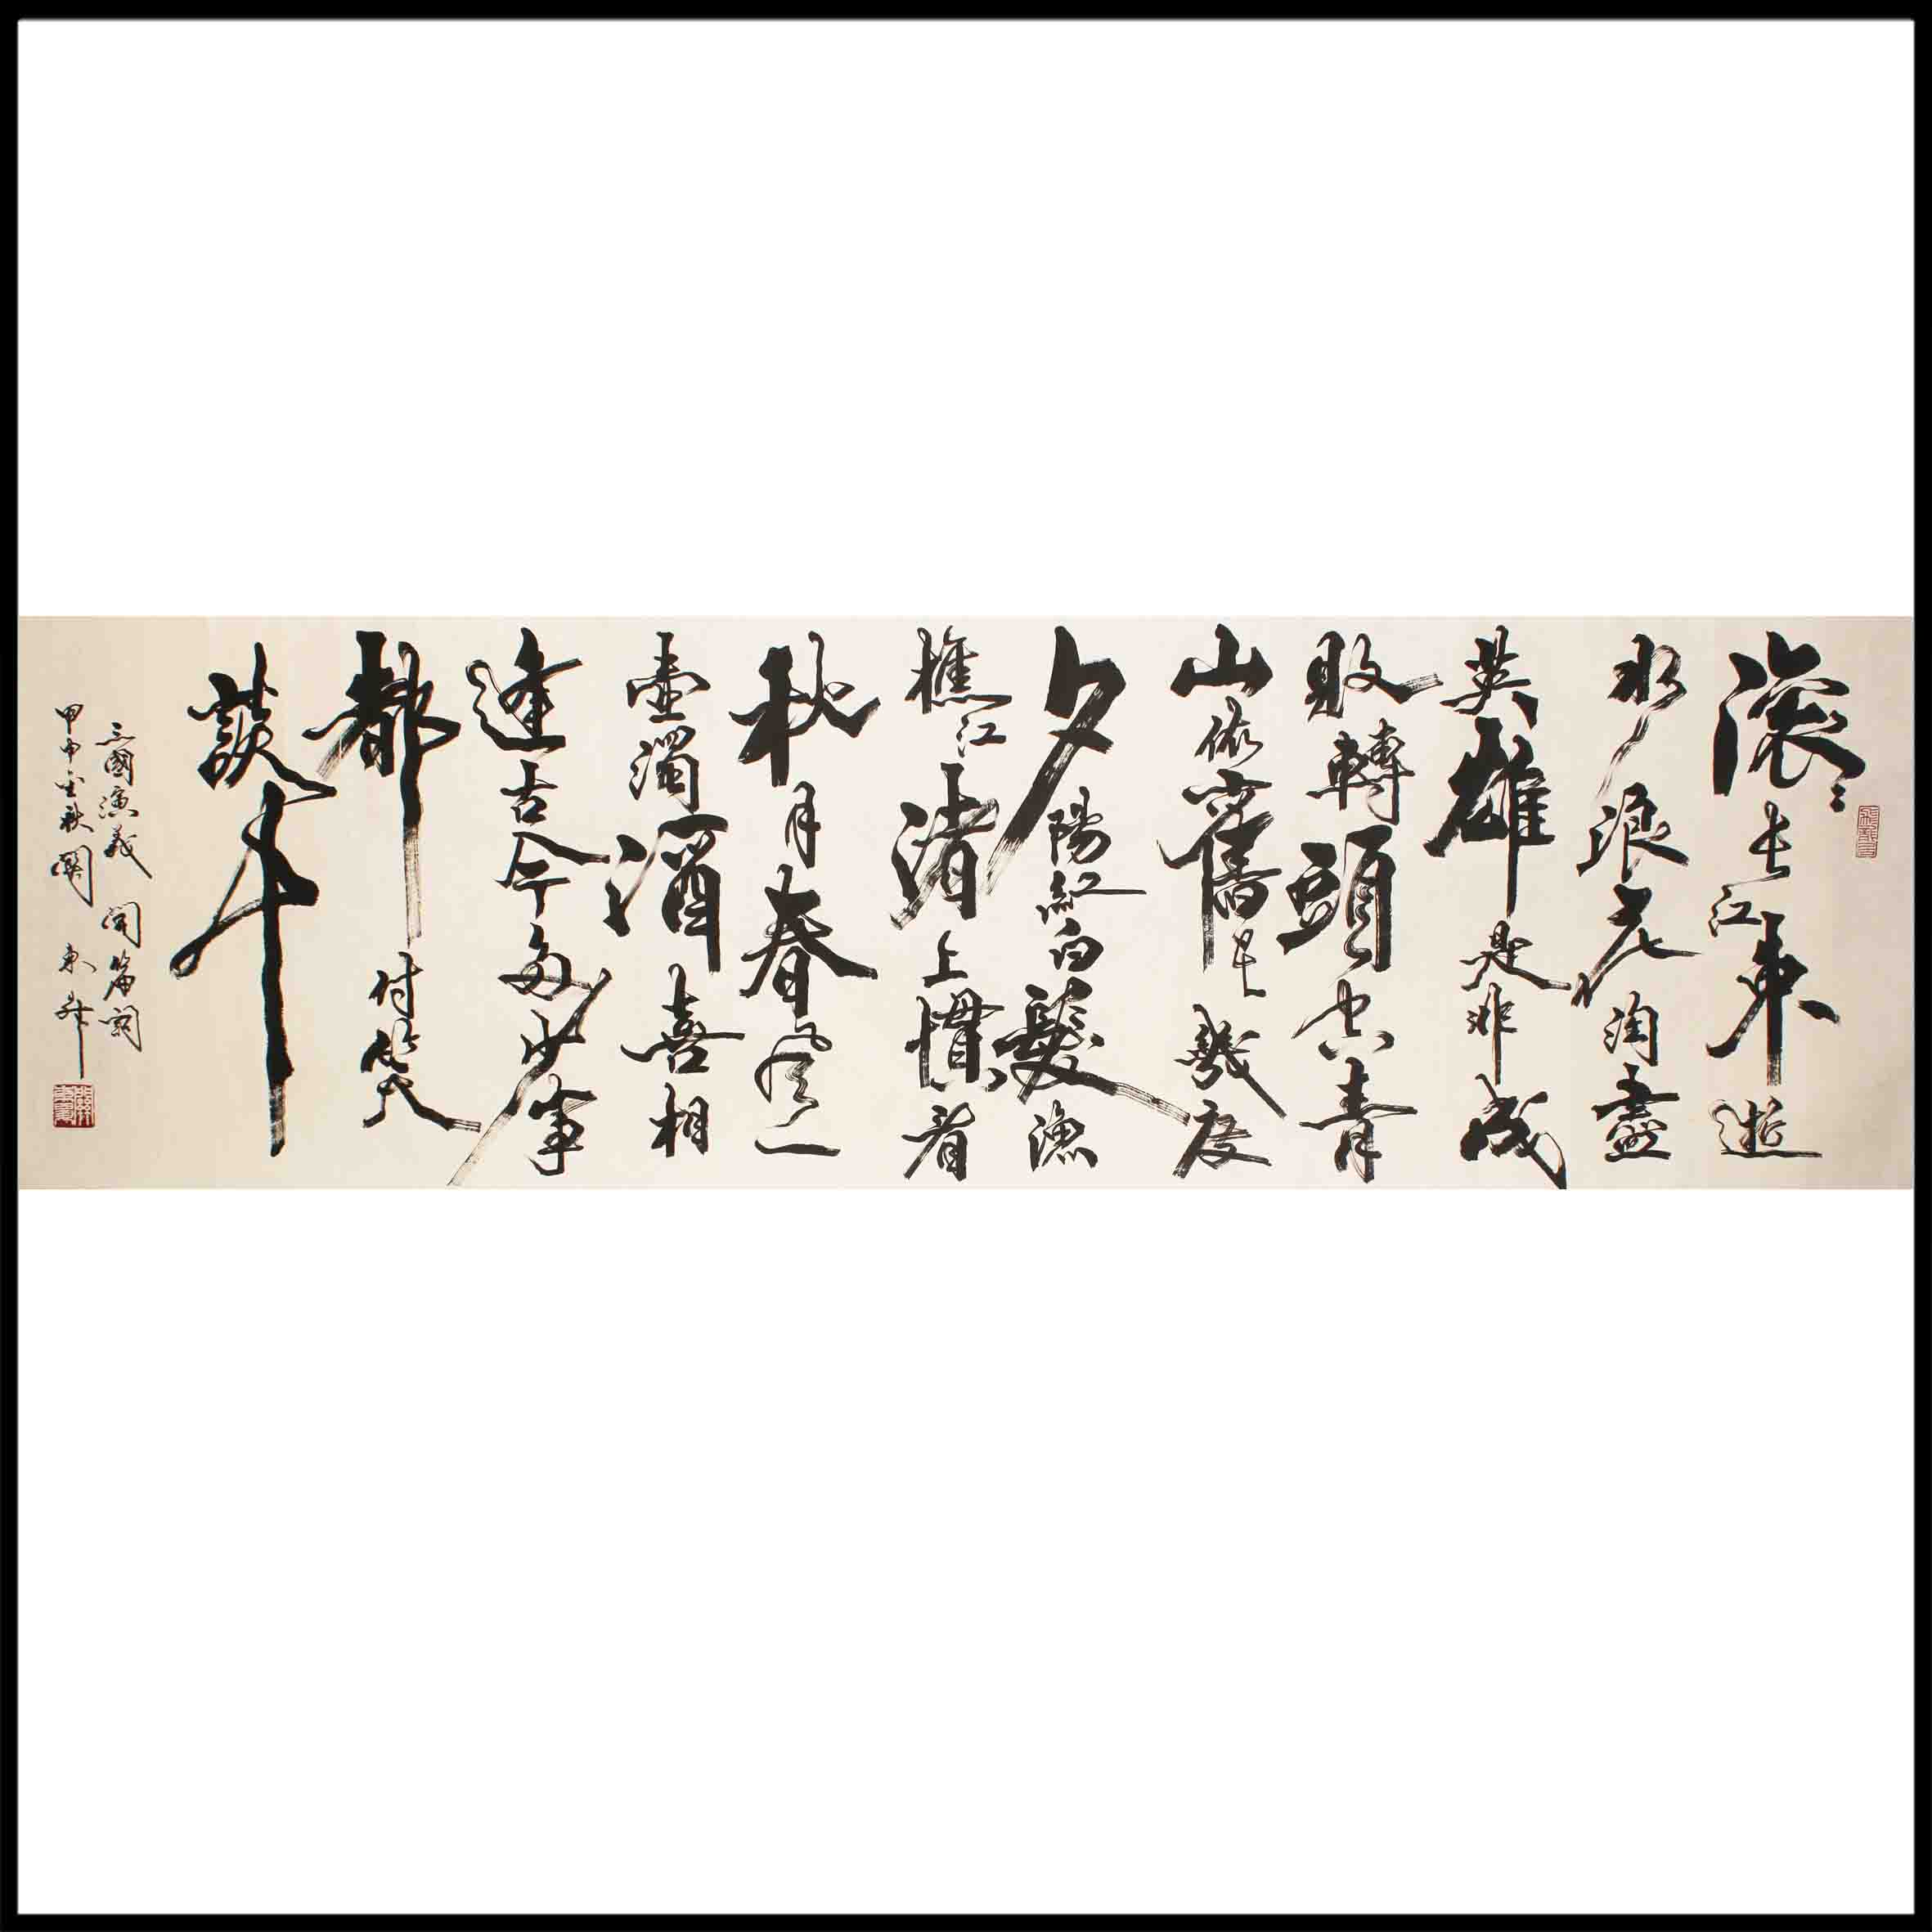 滚〻長江東逝
水浪花淘盡
英雄是非成
敗轉頭空青
山依舊在幾度
夕陽紅白髮漁
樵江渚上慣看
秋月春風一
壺濁酒喜相
逢古今多少事
都付笑
談中
三國演義開篇詞
甲申金秋關東升